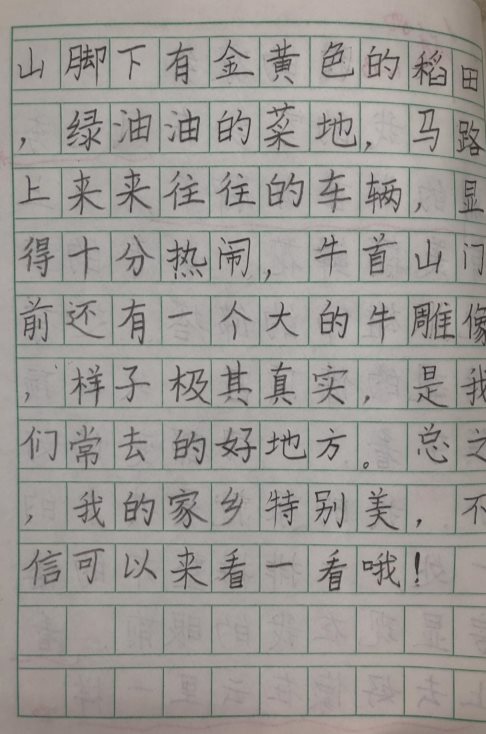 山脚下有金黄色的稻田
，绿油油的菜地，马路
上来来往往的车辆，显
得十分热闹，牛首山门
前还有一个大的牛雕像
，样子极其真实，是我
们常去的好地方。总之
，我的家乡特别美，不
信可以来看一看哦！